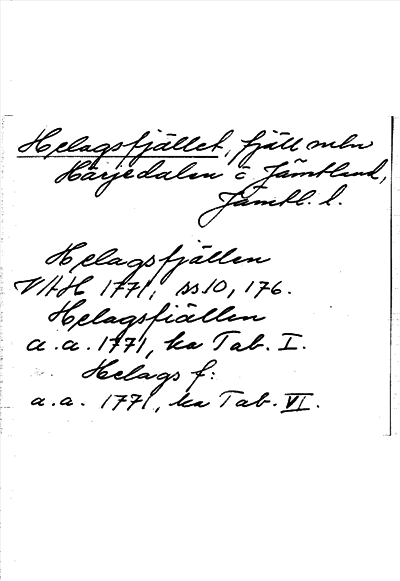 Helagsfjället, fjäll mln
Härjedalen o Jämtland,
Jämtl. l.
Helagsfjällen
VAH 1771, ss. 10, 176.
Helagsfiällen
a. a. 1771, ka Tab. I.
Helags f:
a. a. 1771, ka Tab. VI.